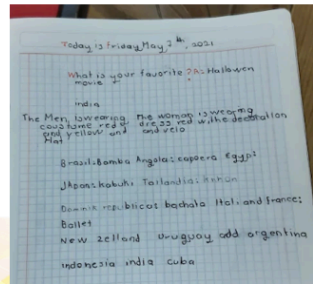 Today is Friday May, 2th, 2021
What is your favorite ?A: Hallowen
movie
india
The Men, iswearing the woman is wearing
coustome red y dress red withe decoration
and yellow and and velo
Hat
Brazil: Bomba Angola: capoera Egypt
Jhapon: kabuhi Tailandia: Kohon
Dominik republicos bachata Itali and france:
Ballet
New zelland Uruguay add argentina
indonesia india cuba